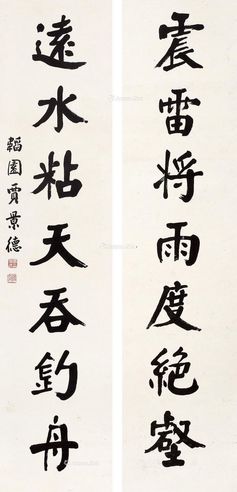 震雷将雨度絕壑
遠水粘天吞釣舟
韜園賈景德